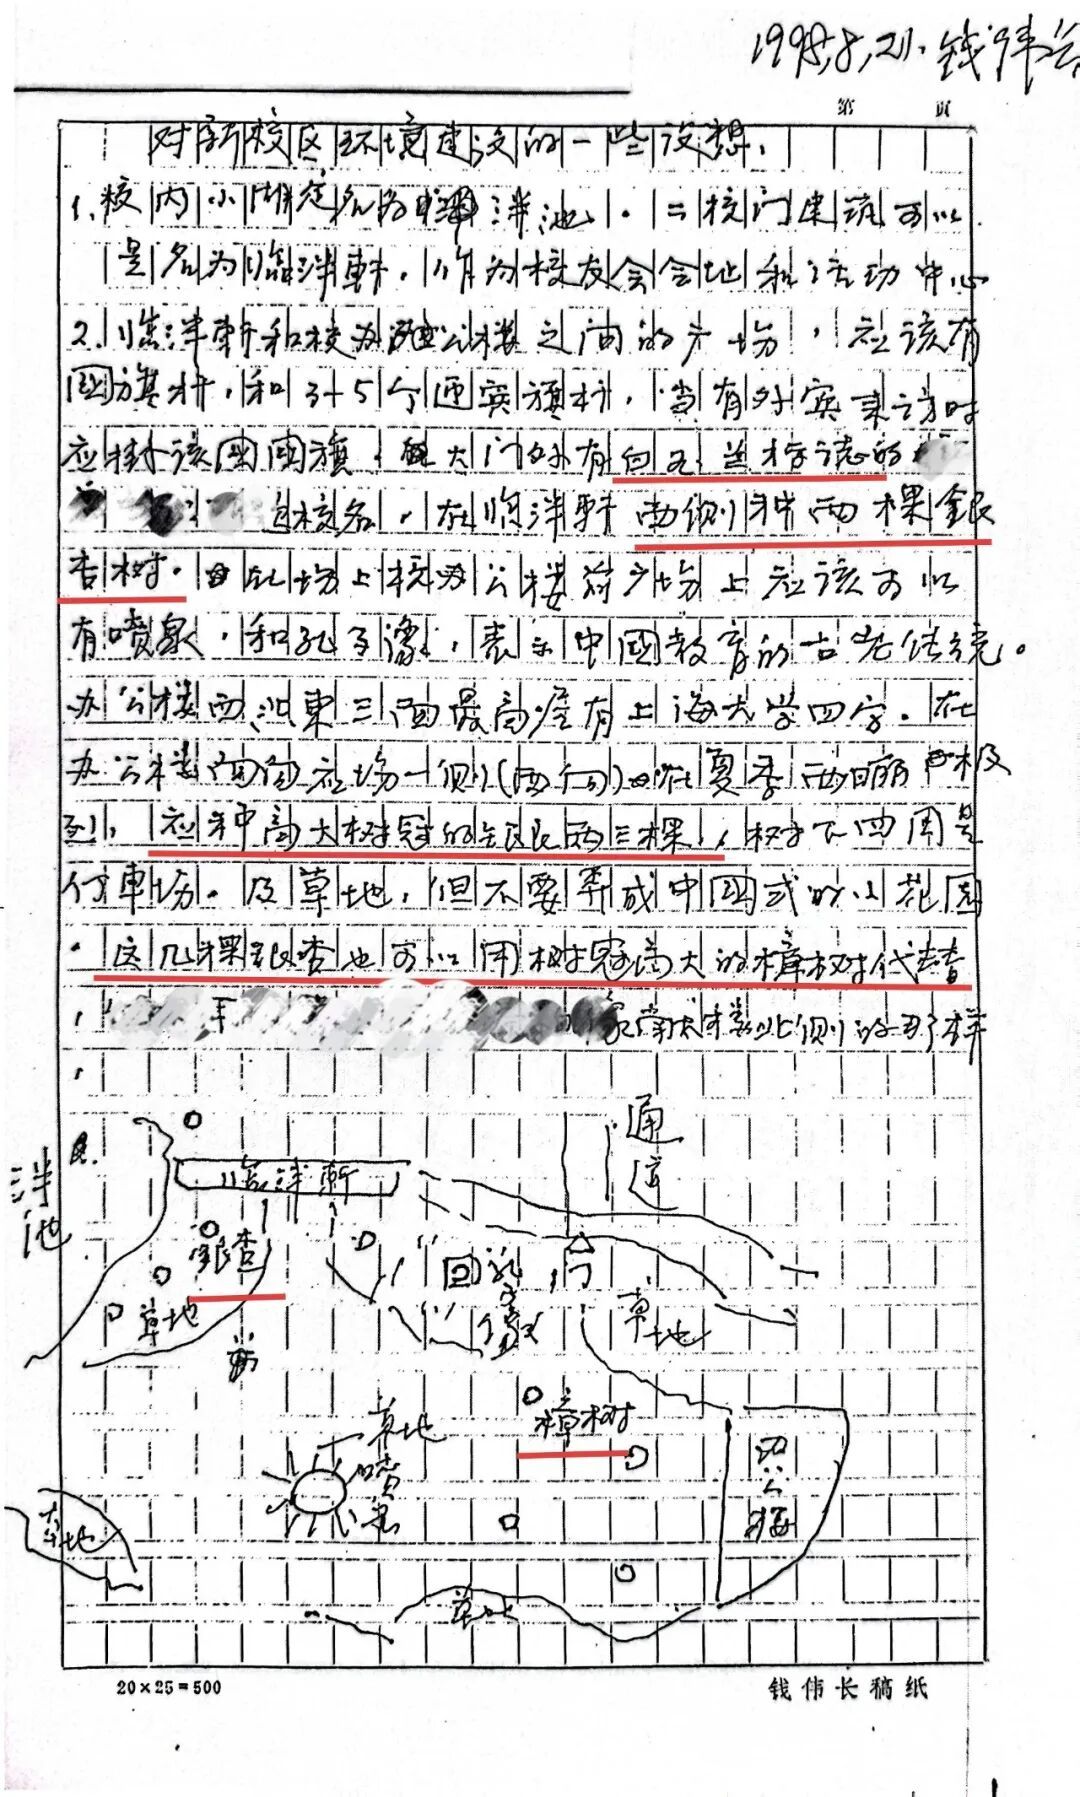 1998.8.21. 钱伟长
第 页
对新校区环境建设的一些设想.
1. 校内小湖定名为泮池. 二校门建筑可以
是名为临泮轩. 作为校友会会地和活动中心
2. 临泮轩和校办公楼之间的广场, 应该有
國旗杆, 和3+5个迎宾旗杆, 当有外宾来访时
应挂该國國旗, 大门外有白玉兰标志的
校名, 在临泮轩两侧种两棵銀
杏树. 广场上校办公楼前广场上应该可以
有喷泉, 和孔子像, 表示中國教育的古老传统。
办公楼西北東三面最高层有上海大学四字. 在
办公楼西南广场一侧(西向) 在夏季西晒
到, 应种高大树冠的银杏两三棵, 树下四周是
停車场. 及草地, 但不要弄成中國式的小花园
. 这几棵银杏也可以用树冠高大的樟树代替
北侧的那样
泮池
临泮轩
通道
银杏
草地
孔子像
门
草地
草地
喷泉
樟树
办公楼
草地
草地
20×25=500
钱伟长稿纸